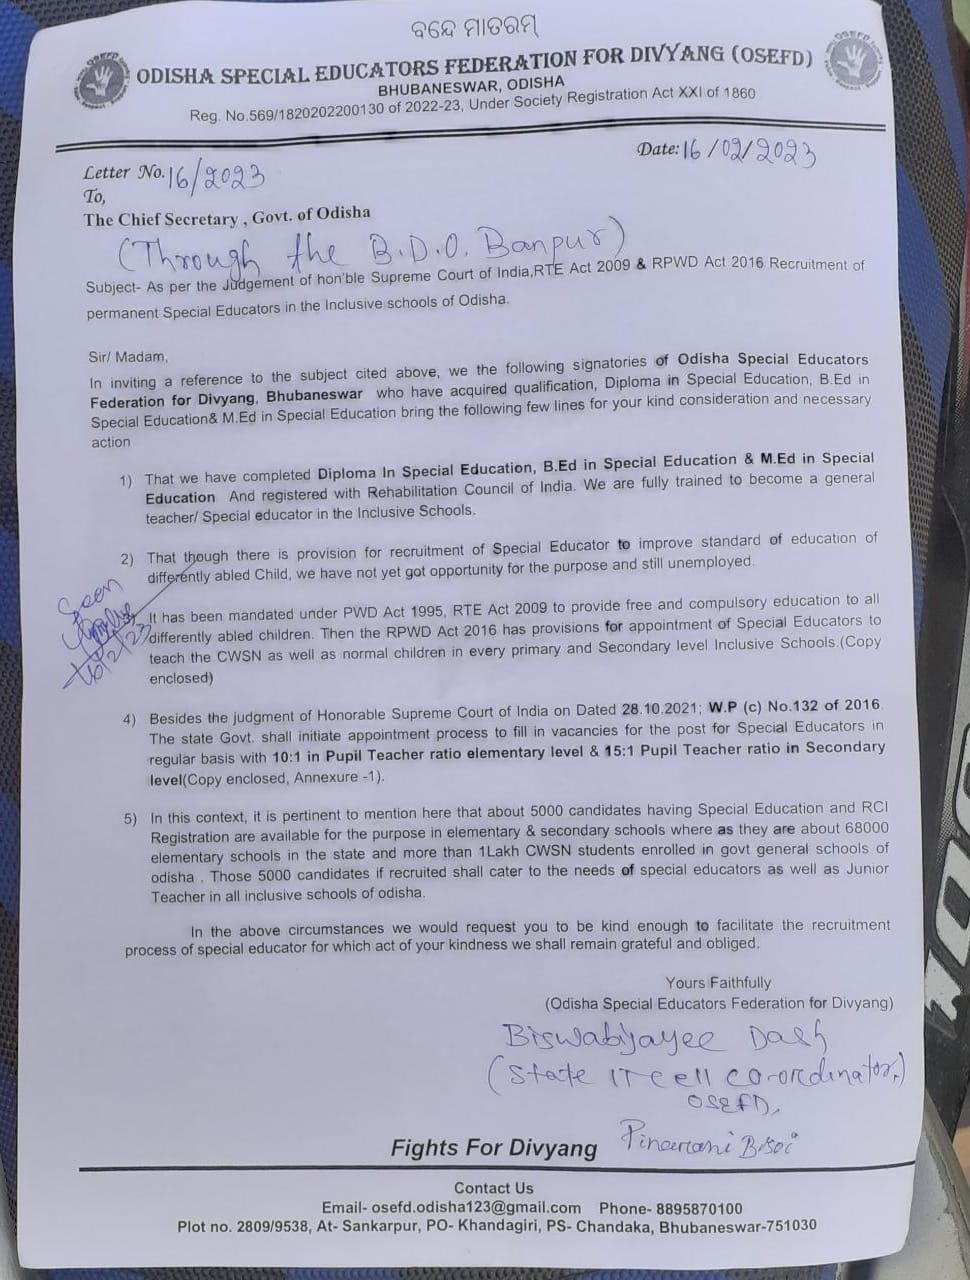 ବନ୍ଦେ ମାତରମ୍
ODISHA SPECIAL EDUCATORS FEDERATION FOR DIVYANG (OSEFD)
BHUBANESWAR, ODISHA
Reg. No.569/1820202200130 of 2022-23, Under Society Registration Act XXI of 1860
Letter No. 16/2023
Date: 16/02/2023
To,
The Chief Secretary , Govt. of Odisha
(Through the B.D.O. Banpur)
Subject- As per the Judgement of hon'ble Supreme Court of India,RTE Act 2009 & RPWD Act 2016 Recruitment of
permanent Special Educators in the Inclusive schools of Odisha.
Sir/ Madam,
In inviting a reference to the subject cited above, we the following signatories of Odisha Special Educators
Federation for Divyang, Bhubaneswar who have acquired qualification, Diploma in Special Education, B.Ed in
Special Education& M.Ed in Special Education bring the following few lines for your kind consideration and necessary
action
1) That we have completed Diploma In Special Education, B.Ed in Special Education & M.Ed in Special
Education And registered with Rehabilitation Council of India. We are fully trained to become a general
teacher/ Special educator in the Inclusive Schools.
2) That though there is provision for recruitment of Special Educator to improve standard of education of
differently abled Child, we have not yet got opportunity for the purpose and still unemployed.
Seen
16/2/23
3) It has been mandated under PWD Act 1995, RTE Act 2009 to provide free and compulsory education to all
differently abled children. Then the RPWD Act 2016 has provisions for appointment of Special Educators to
teach the CWSN as well as normal children in every primary and Secondary level Inclusive Schools.(Copy
enclosed)
4) Besides the judgment of Honorable Supreme Court of India on Dated 28.10.2021; W.P (c) No.132 of 2016.
The state Govt. shall initiate appointment process to fill in vacancies for the post for Special Educators in
regular basis with 10:1 in Pupil Teacher ratio elementary level & 15:1 Pupil Teacher ratio in Secondary
level(Copy enclosed, Annexure -1).
5) In this context, it is pertinent to mention here that about 5000 candidates having Special Education and RCI
Registration are available for the purpose in elementary & secondary schools where as they are about 68000
elementary schools in the state and more than 1Lakh CWSN students enrolled in govt general schools of
odisha . Those 5000 candidates if recruited shall cater to the needs of special educators as well as Junior
Teacher in all inclusive schools of odisha.
In the above circumstances we would request you to be kind enough to facilitate the recruitment
process of special educator for which act of your kindness we shall remain grateful and obliged.
Yours Faithfully
(Odisha Special Educators Federation for Divyang)
Biswabijayee Dash
(State IT cell co-ordinator)
OSEFD,
Fights For Divyang
Contact Us
Email- osefd.odisha123@gmail.com Phone- 8895870100
Plot no. 2809/9538, At- Sankarpur, PO- Khandagiri, PS- Chandaka, Bhubaneswar-751030